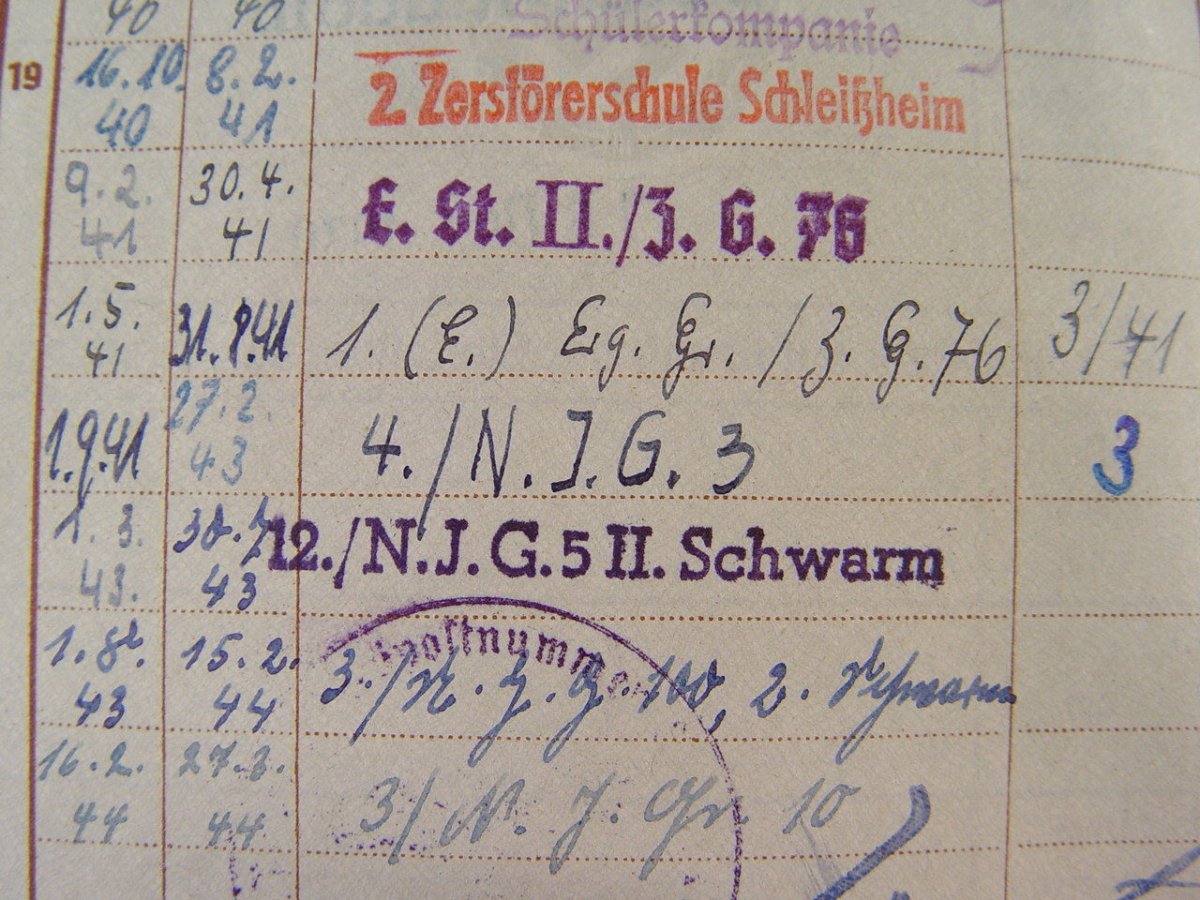 40 40 Schülerkompanie
19 16.10. 8.2. 2. Zerstörerschule Schleißheim
40 41
9.2. 30.4. E. St. II./Z. G. 76
41 41
1.5. 31.8.41 1. (E.) Erg. Gr. / Z. G. 76 3/41
41
27.2.
1.9.41 43 4./N. J. G. 3 3
1. 3. 12./N.J.G.5 II. Schwarm
43. 43
postnummer
1.8. 15.2. 3./N. J. G. 100, 2. Schwarm
43 44
16.2. 3/ N. J. Gr. 10
44 44